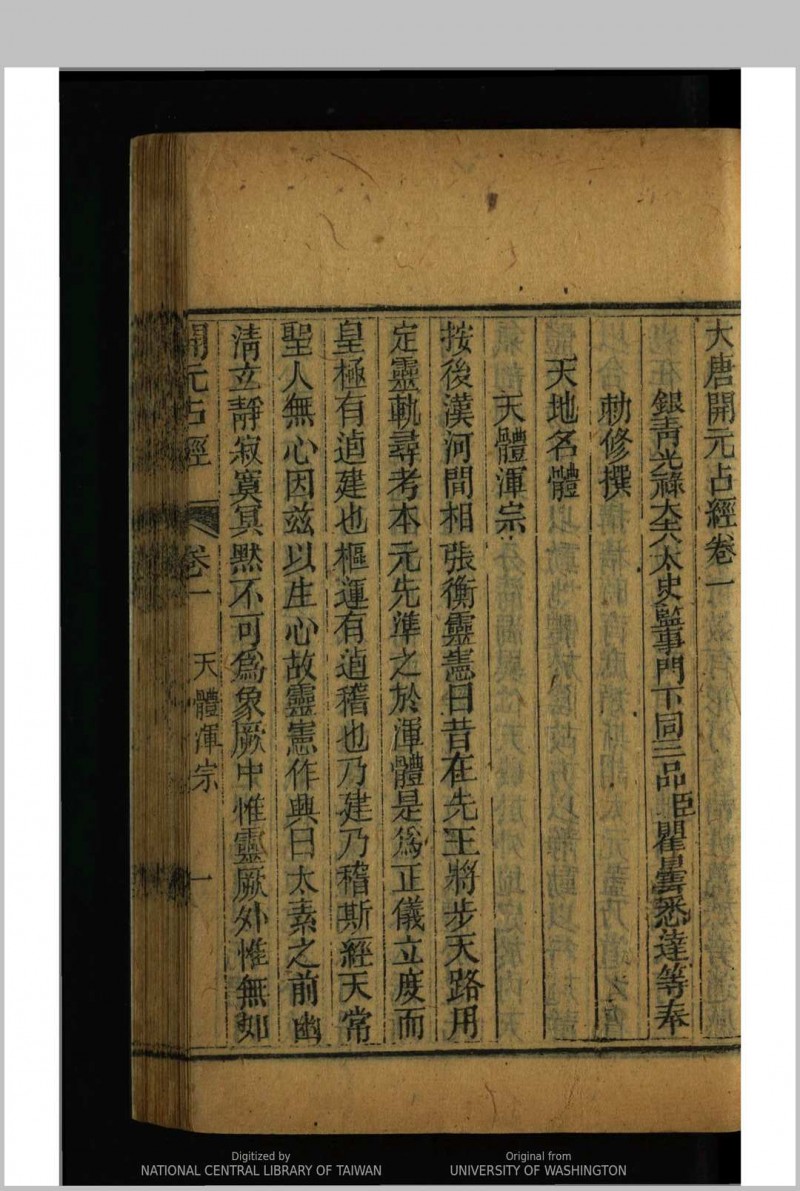 大唐開元占經卷一
銀青光祿大夫太史監事門下同三品臣瞿曇悉達等奉
勅修撰
天地名體
天體渾宗
按後漢河間相張衡靈憲曰昔在先王將步天路用
定靈軌尋考本元先準之於渾體是為正儀立度而
皇極有逌建也樞運有逌稽也乃建乃稽斯經天常
聖人無心因茲以生心故靈憲作興曰太素之前幽
清立靜寂寞冥默不可為象厥中惟靈厥外惟無如
開元占經 卷一 天體渾宗 一
Digitized by
NATIONAL CENTRAL LIBRARY OF TAIWAN
Original from
UNIVERSITY OF WASHINGTON